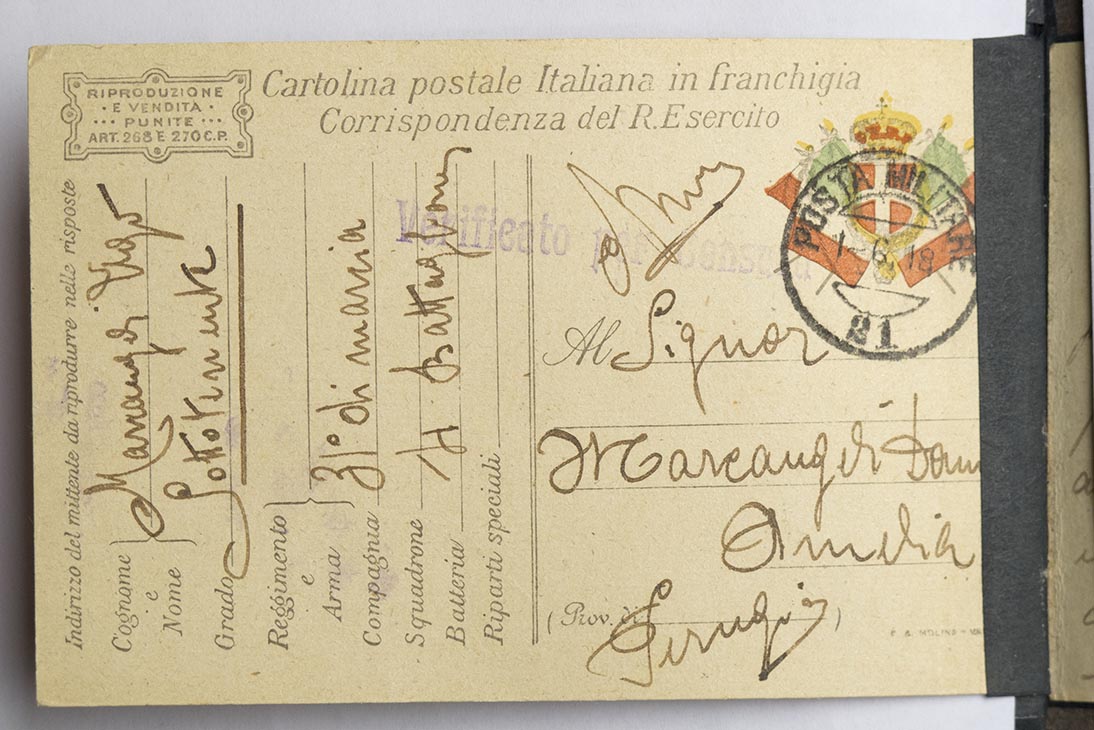 RIPRODUZIONE
E VENDITA
PUNITE
ART. 268 E 270 C.P.
Cartolina postale Italiana in franchigia
Corrispondenza del R. Esercito
Indirizzo del mittente da riprodurre nelle risposte
Cognome
e
Nome
Grado
Reggimento
e
Arma
31° di marcia
Compagnia
Squadrone
Batteria
Riparti speciali
Verificato per censura
POSTA MILITARE
1-6 18
21
Al Signor
Marcangeli
Amelia
(Prov. di
Perugia)